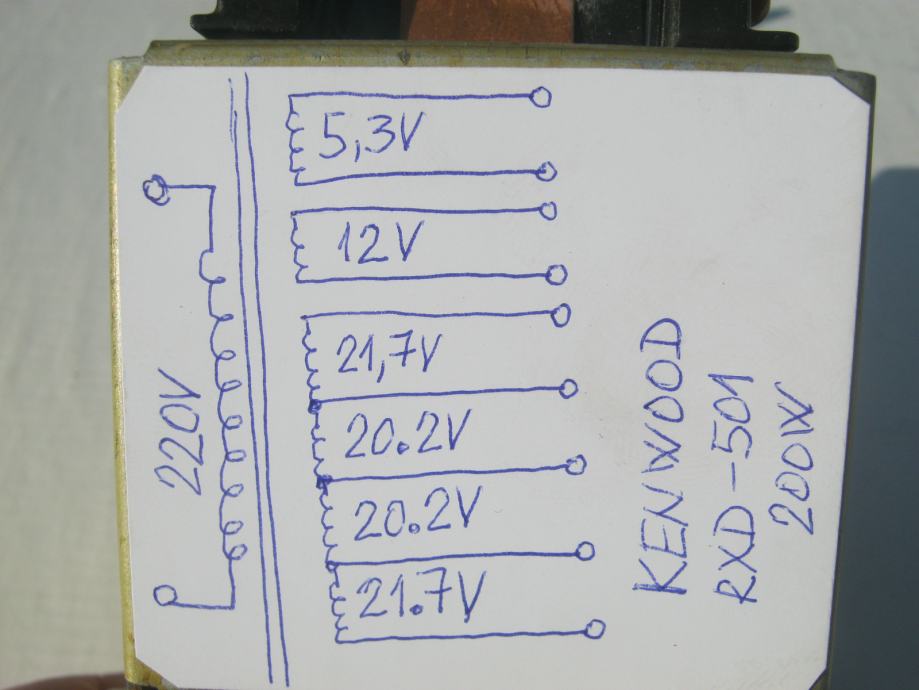 5,3V
12V
21,7V
20.2V
20.2V
21.7V
220V
KENWOOD
RXD-501
200W